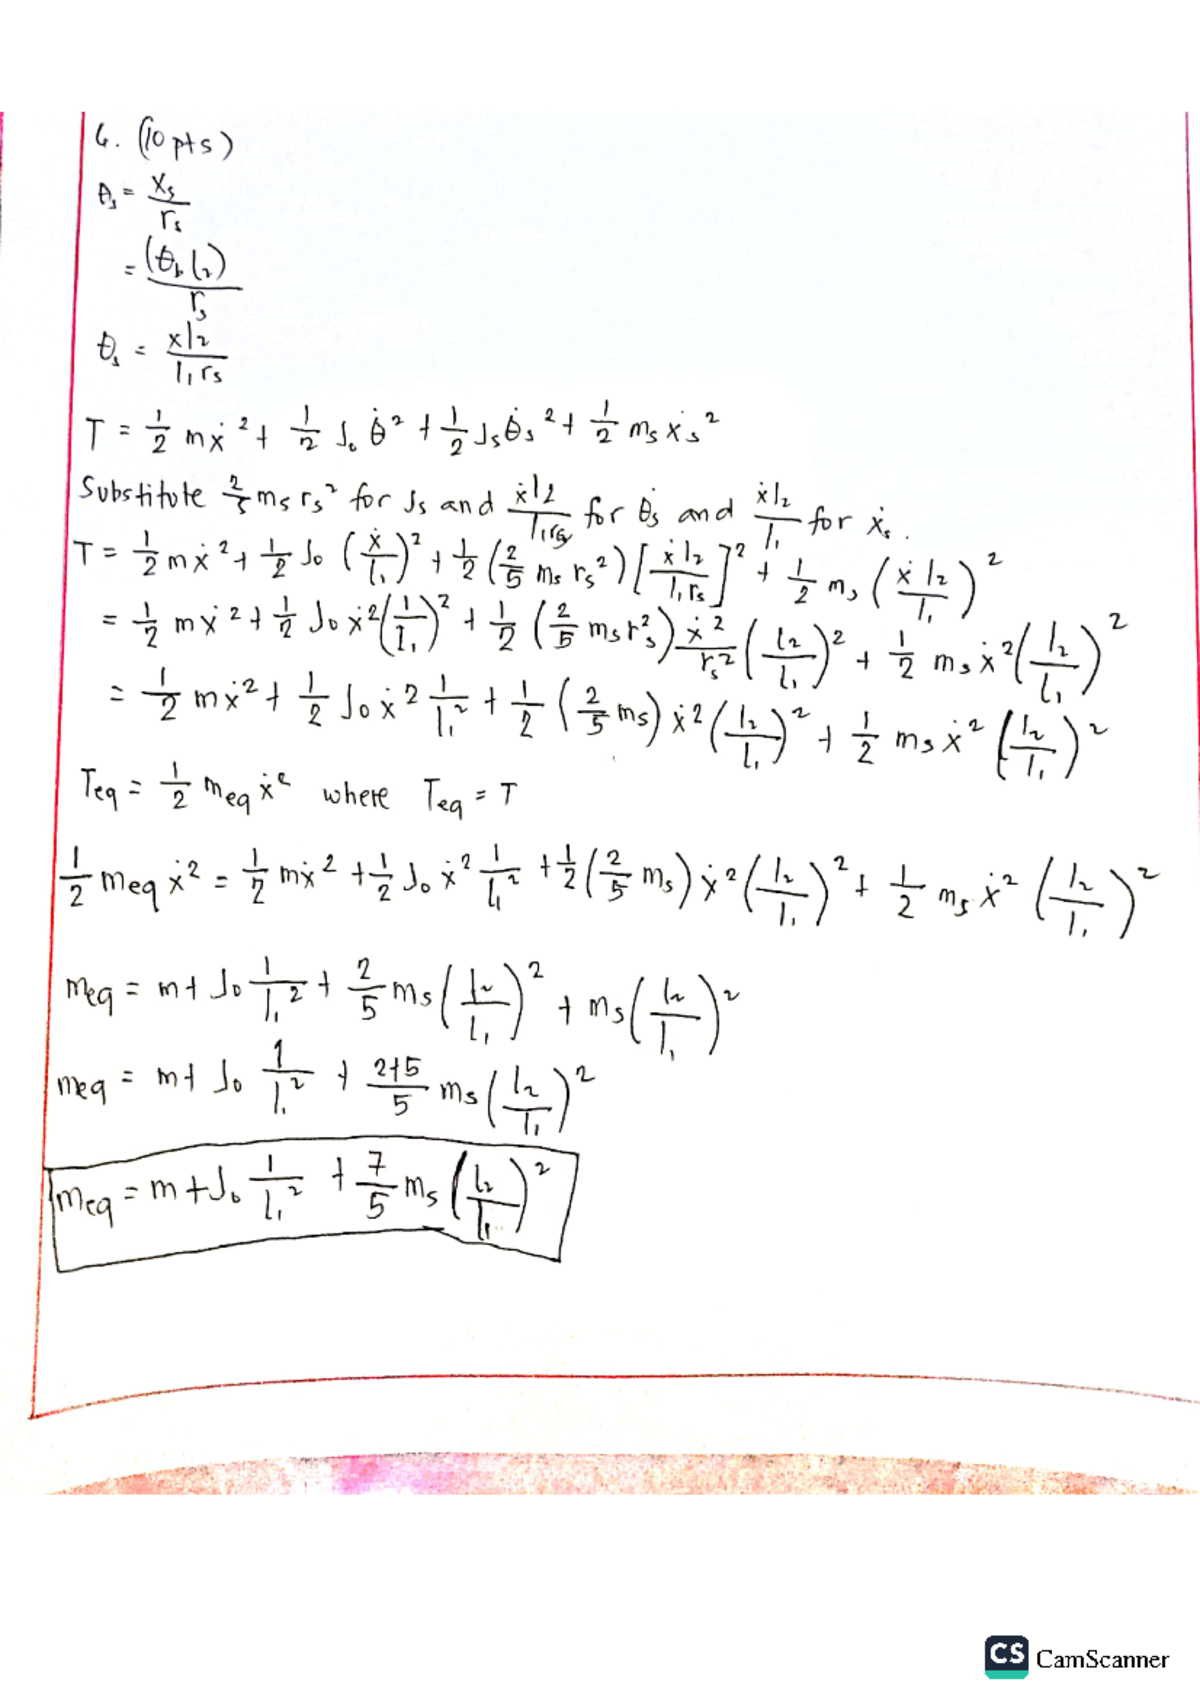 6. (10 pts)
θₛ = xₛ / rₛ
= (θb l₂) / rₛ
θₛ = x l₂ / l₁ rₛ
T = 1/2 mẋ² + 1/2 J₀ θ̇² + 1/2 Jₛ θ̇ₛ² + 1/2 mₛ ẋₛ²
Substitute 2/5 mₛ rₛ² for Jₛ and ẋ l₂ / l₁ rₛ for θ̇ₛ and ẋ l₂ / l₁ for ẋₛ.
T = 1/2 mẋ² + 1/2 J₀ (ẋ / l₁)² + 1/2 (2/5 mₛ rₛ²) [ẋ l₂ / l₁ rₛ]² + 1/2 mₛ (ẋ l₂ / l₁)²
= 1/2 mẋ² + 1/2 J₀ ẋ² (1 / l₁)² + 1/2 (2/5 mₛ rₛ²) ẋ² / rₛ² (l₂ / l₁)² + 1/2 mₛ ẋ² (l₂ / l₁)²
= 1/2 mẋ² + 1/2 J₀ ẋ² 1 / l₁² + 1/2 (2/5 mₛ) ẋ² (l₂ / l₁)² + 1/2 mₛ ẋ² (l₂ / l₁)²
Teq = 1/2 meq ẋ² where Teq = T
1/2 meq ẋ² = 1/2 mẋ² + 1/2 J₀ ẋ² 1 / l₁² + 1/2 (2/5 mₛ) ẋ² (l₂ / l₁)² + 1/2 mₛ ẋ² (l₂ / l₁)²
meq = m + J₀ 1 / l₁² + 2/5 mₛ (l₂ / l₁)² + mₛ (l₂ / l₁)²
meq = m + J₀ 1 / l₁² + 2+5 / 5 mₛ (l₂ / l₁)²
meq = m + J₀ 1 / l₁² + 7/5 mₛ (l₂ / l₁)²
CS CamScanner